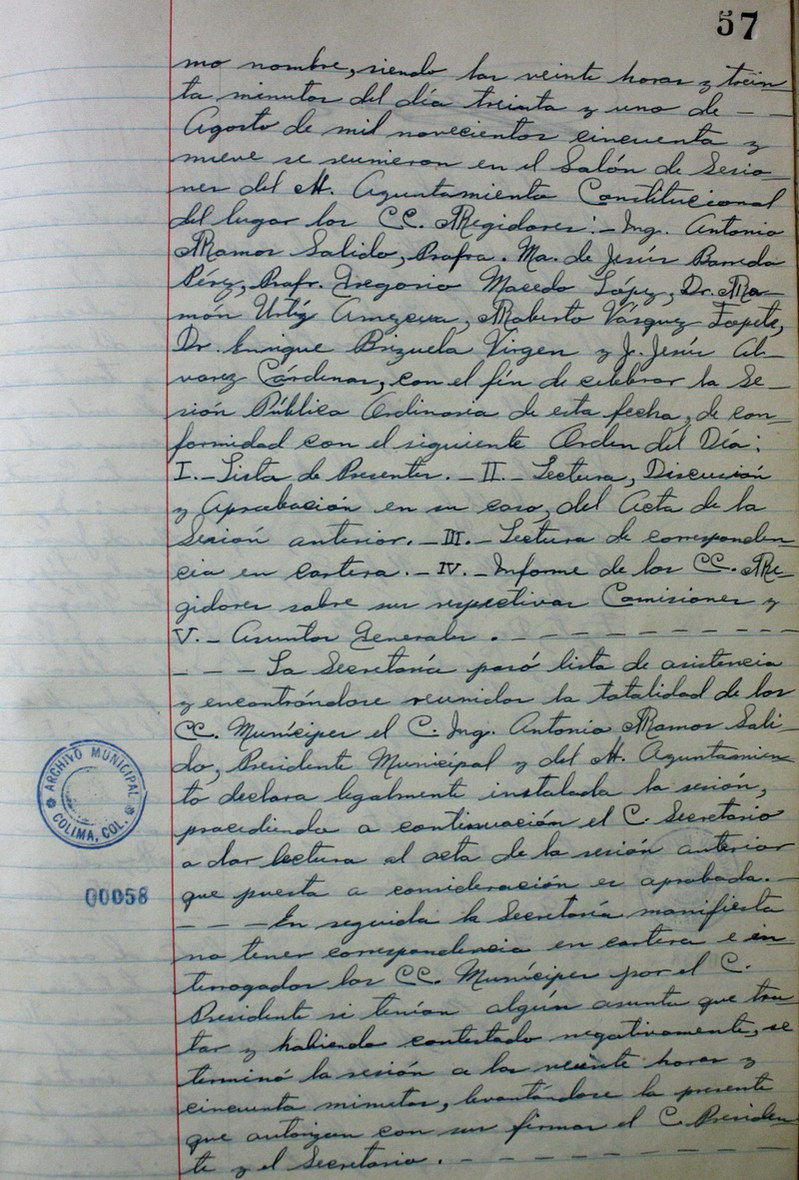 57
mo nombre, siendo las veinte horas y trein-
ta minutos del día treinta y uno de - -
Agosto de mil novecientos cincuenta y
nueve se reunieron en el Salón de Sesio-
nes del H. Ayuntamiento Constitucional
del lugar los CC. Regidores:- Ing. Antonio
Ramos Salido, Profra. Ma. de Jesús Barreda
Pérez, Profr. Gregorio Macedo López, Dr. Ra-
món Amezcua, Roberto Vásquez Topete,
Dr. Enrique Brizuela Virgen y J. Jesús Al-
varez Cárdenas, con el fín de celebrar la Se-
sión Pública Ordinaria de esta fecha, de con-
formidad con el siguiente Orden del Día:
I.- Lista de Presentes.- II.- Lectura, Discusión
y Aprobación en su caso, del Acta de la
Sesión anterior.- III.- Lectura de corresponden-
cia en cartera.- IV.- Informe de los CC. Re-
gidores sobre sus respectivas Comisiones y
V.- Asuntos Generales. - - - - - - - - - -
- - - La Secretaría pasó lista de asistencia
y encontrándose reunidos la totalidad de los
CC. Munícipes el C. Ing. Antonio Ramos Sali-
do, Presidente Munícipal y del H. Ayuntamien-
to declara legalmente instalada la sesión,
procediendo a continuación el C. Secretario
a dar lectura al acta de la sesión anterior
que puesta a consideración es aprobada. -
- - - En seguida la Secretaría manifiesta
no tener correspondencia en cartera e in-
terrogados los CC. Munícipes por el C.
Presidente si tenían algún asunto que tra-
tar y habiendo contestado negativamente, se
terminó la sesión a las veinte horas y
cincuenta minutos, levantándose la presente
que autorizan con sus firmas el C. Presiden-
te y el Secretario. - - - - - - - - - - - -
ARCHIVO MUNICIPAL
COLIMA, COL.
00058